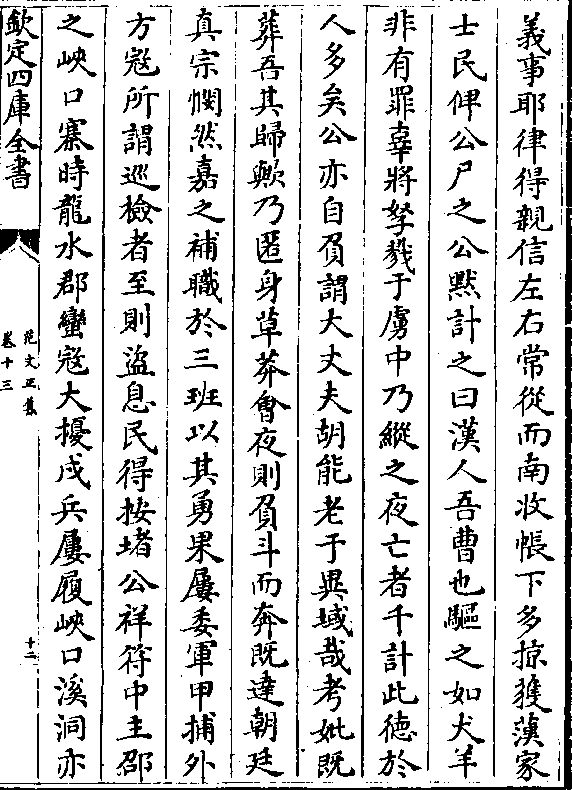 義事耶律得親信左右常從而南牧帳下多掠獲漢家
士民俾公尸之公黙計之曰漢人吾曹也驅之如犬羊
非有罪辜將孥戮于虜中乃縱之夜亡者千計此德於
人多矣公亦自負謂大丈夫胡能老于異域哉考妣既
葬吾其歸歟乃匿身草莽會夜則負斗而奔既達朝廷
真宗憫然嘉之補職於三班以其勇果屢委軍甲捕外
方寇所謂巡檢者至則盗息民得按堵公祥符中主邵
之峽口寨時龍水郡蠻寇大擾戍兵屢履峽口溪洞亦
欽定四庫全書
范文正集
卷十三
十二